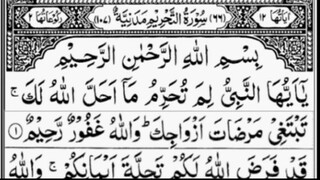 اٰيَاتُهَا ١٢ (٦٦) سُوْرَةُ التَّحْرِيْمِ مَدَنِيَّةٌ (١٠٧) رُكُوْعَاتُهَا ٢
بِسْمِ اللهِ الرَّحْمٰنِ الرَّحِيْمِ
يٰۤاَيُّهَا النَّبِيُّ لِمَ تُحَرِّمُ مَاۤ اَحَلَّ اللهُ لَكَ ۚ
تَبْتَغِيْ مَرْضَاتَ اَزْوَاجِكَ ؕ وَاللهُ غَفُوْرٌ رَّحِيْمٌ ﴿١﴾
قَدْ فَرَضَ اللهُ لَكُمْ تَحِلَّةَ اَيْمَانِكُمْ ۚ وَاللهُ